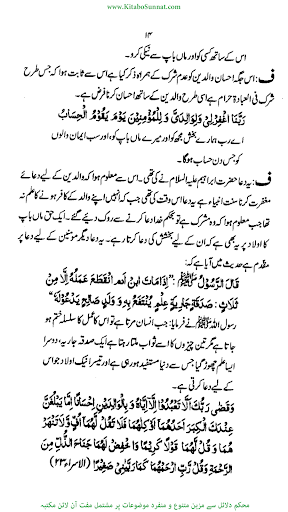 www.KitaboSunnat.com
۱۴
اس کے ساتھ کسی کو اور ماں باپ سے نیکی کرو۔
ف: اس جگہ احسان والدین کو عدم شرک کے ہمراہ ذکر کیا ہے اس سے ثابت ہوا کہ جس طرح
شرک فی العبادۃ حرام ہے اسی طرح والدین کے ساتھ احسان کرنا فرض ہے۔
رَبَّنَا اغْفِرْلِیْ وَلِوَالِدَیَّ وَلِلْمُؤْمِنِیْنَ یَوْمَ یَقُوْمُ الْحِسَابُ
اے رب ہمارے بخش مجھ کو اور میرے ماں باپ کو، اور سب ایمان والوں
کو جس دن حساب ہوگا۔
ف: یہ دعا حضرت ابراہیم علیہ السلام نے کی تھی۔ اس سے معلوم ہوا کہ والدین کے لیے دعائے
مغفرت کرنا سنت انبیاء ہے یہ دعا اس وقت کی تھی جب کہ انہیں اپنے والد کے کافر ہونے کا علم نہ
تھا جب معلوم ہوا کہ وہ مشرک ہے تو بحکم خدا دعا کرنے سے روک دیئے گئے۔ ایک حق ماں باپ
کا اولاد پر یہ بھی ہے کہ ان کے لیے بخشش کی دعا کرتا رہے۔ یہ دعا دیگر مؤمنین کے لیے دعا پر
مقدم ہے حدیث میں آیا ہے کہ:
قَالَ الرَّسُوْلُ ﷺ: "اِذَا مَاتَ ابْنُ اٰدَمَ انْقَطَعَ عَمَلُهٗ اِلَّا مِنْ
ثَلَاثٍ: صَدَقَةٍ جَارِيَةٍ عِلْمٍ يُنْتَفَعُ بِهٖ وَ وَلَدٍ صَالِحٍ يَدْعُوْ لَهٗ"
رسول اللہ ﷺ نے فرمایا: جب انسان مرتا ہے تو اس کا عمل کا سلسلہ ختم ہو
جاتا ہے مگر تین چیزوں کا اسے ثواب ملتا رہتا ہے ایک صدقہ جاریہ، دوسرا
ایسا علم چھوڑ گیا جس سے دنیا مستفید ہو رہی ہے اور تیسرا نیک اولاد جو اس
کے لیے دعا کرتی ہے۔
وَقَضٰی رَبُّکَ اَلَّا تَعْبُدُوْٓا اِلَّآ اِیَّاہُ وَ بِالْوَالِدَیْنِ اِحْسَانًا اِمَّا یَبْلُغَنَّ
عِنْدَکَ الْکِبَرَ اَحَدُھُمَآ اَوْ کِلٰھُمَا فَلَا تَقُلْ لَّھُمَآ اُفٍّ وَّ لَا تَنْھَرْ
ھُمَا وَ قُلْ لَّھُمَا قَوْلًا کَرِیْمًا وَ اخْفِضْ لَھُمَا جَنَاحَ الذُّلِّ مِنَ
الرَّحْمَةِ وَ قُلْ رَّبِّ ارْحَمْھُمَا کَمَا رَبَّیٰنِیْ صَغِیْرًا (الاسراء ۲۳)
محکم دلائل سے مزین متنوع و منفرد موضوعات پر مشتمل مفت آن لائن مکتبہ